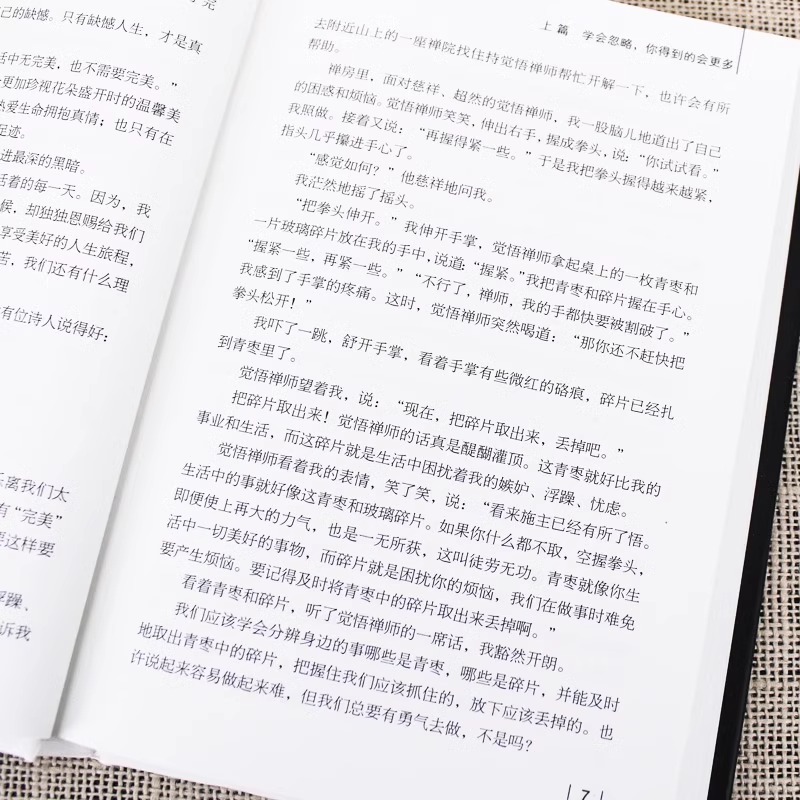 完
己的缺憾。只有缺憾人生，才是真
活中无完美，也不需要完美。”
会更加珍视花朵盛开时的温馨美
热爱生命拥抱真情；也只有在
足迹。
进最深的黑暗。
活着的每一天。因为，我
候，却独独恩赐给我们
享受美好的人生旅程，
苦，我们还有什么理
有位诗人说得好：
乐离我们太
有“完美”
要这样要
浮躁、
诉我
上篇 学会忽略，你得到的会更多
去附近山上的一座禅院找住持觉悟禅师帮忙开解一下，也许会有所
帮助。
禅房里，面对慈祥、超然的觉悟禅师，我一股脑儿地道出了自己
的困惑和烦恼。觉悟禅师笑笑，伸出右手，握成拳头，说：“你试试看。”
我照做。接着又说：“再握得紧一些。”于是我把拳头握得越来越紧，
指头几乎攥进手心了。
“感觉如何？”他慈祥地问我。
我茫然地摇了摇头。
“把拳头伸开。”我伸开手掌，觉悟禅师拿起桌上的一枚青枣和
一片玻璃碎片放在我的手中，说道：“握紧。”我把青枣和碎片握在手心。
“握紧一些，再紧一些。”“不行了，禅师，我的手都快要被割破了。”
我感到了手掌的疼痛。这时，觉悟禅师突然喝道：“那你还不赶快把
拳头松开！”
我吓了一跳，舒开手掌，看着手掌有些微红的硌痕，碎片已经扎
到青枣里了。
觉悟禅师望着我，说：“现在，把碎片取出来，丢掉吧。”
把碎片取出来！觉悟禅师的话真是醍醐灌顶。这青枣就好比我的
事业和生活，而这碎片就是生活中困扰着我的嫉妒、浮躁、忧虑。
觉悟禅师看着我的表情，笑了笑，说：“看来施主已经有所了悟。
生活中的事就好像这青枣和玻璃碎片。如果你什么都不取，空握拳头，
即便使上再大的力气，也是一无所获，这叫徒劳无功。青枣就像你生
活中一切美好的事物，而碎片就是困扰你的烦恼，我们在做事时难免
要产生烦恼。要记得及时将青枣中的碎片取出来丢掉啊。”
看着青枣和碎片，听了觉悟禅师的一席话，我豁然开朗。
我们应该学会分辨身边的事哪些是青枣，哪些是碎片，并能及时
地取出青枣中的碎片，把握住我们应该抓住的，放下应该丢掉的。也
许说起来容易做起来难，但我们总要有勇气去做，不是吗？
7